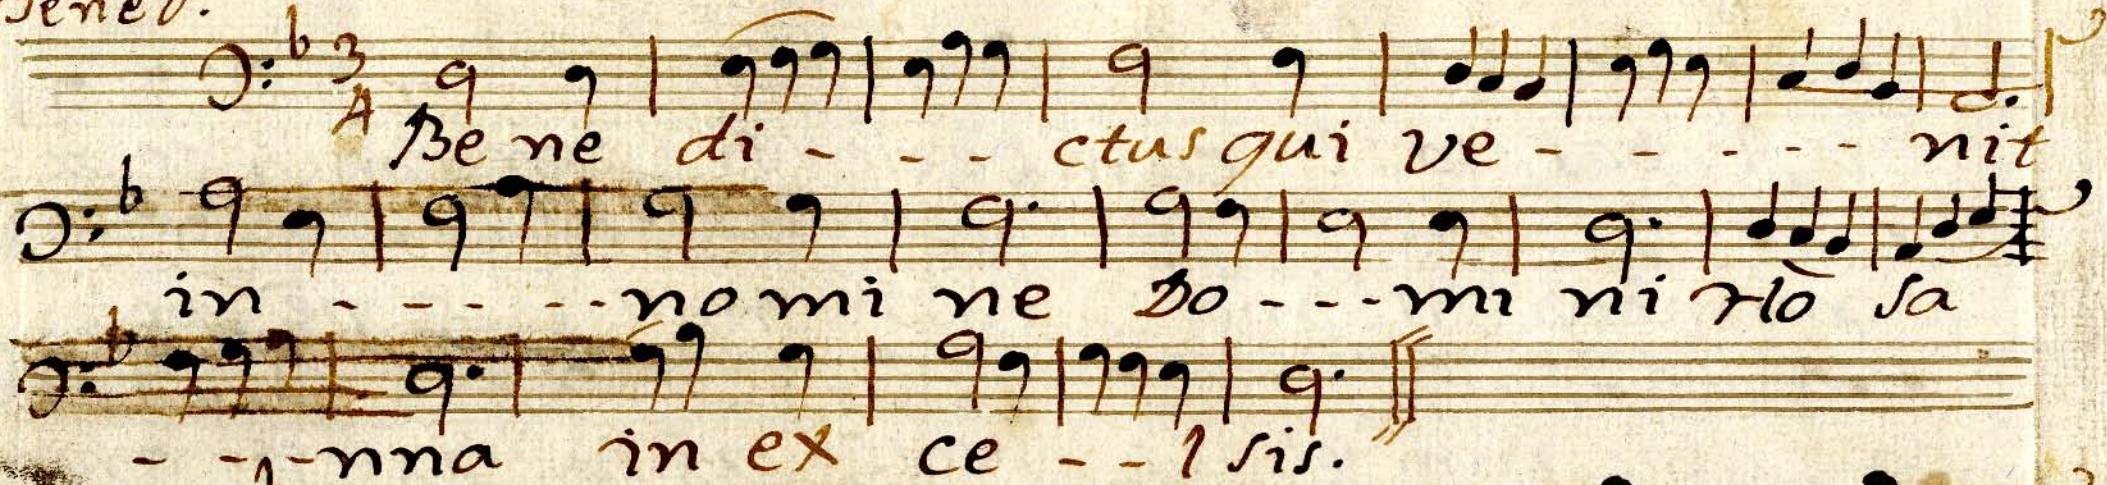 Bened.
3 4
Be ne di - - - ctus qui ve - - - - - nit
in - - - - - no mi ne Do - - - mi ni Ho sa
- - - nna in ex ce - - l sis.